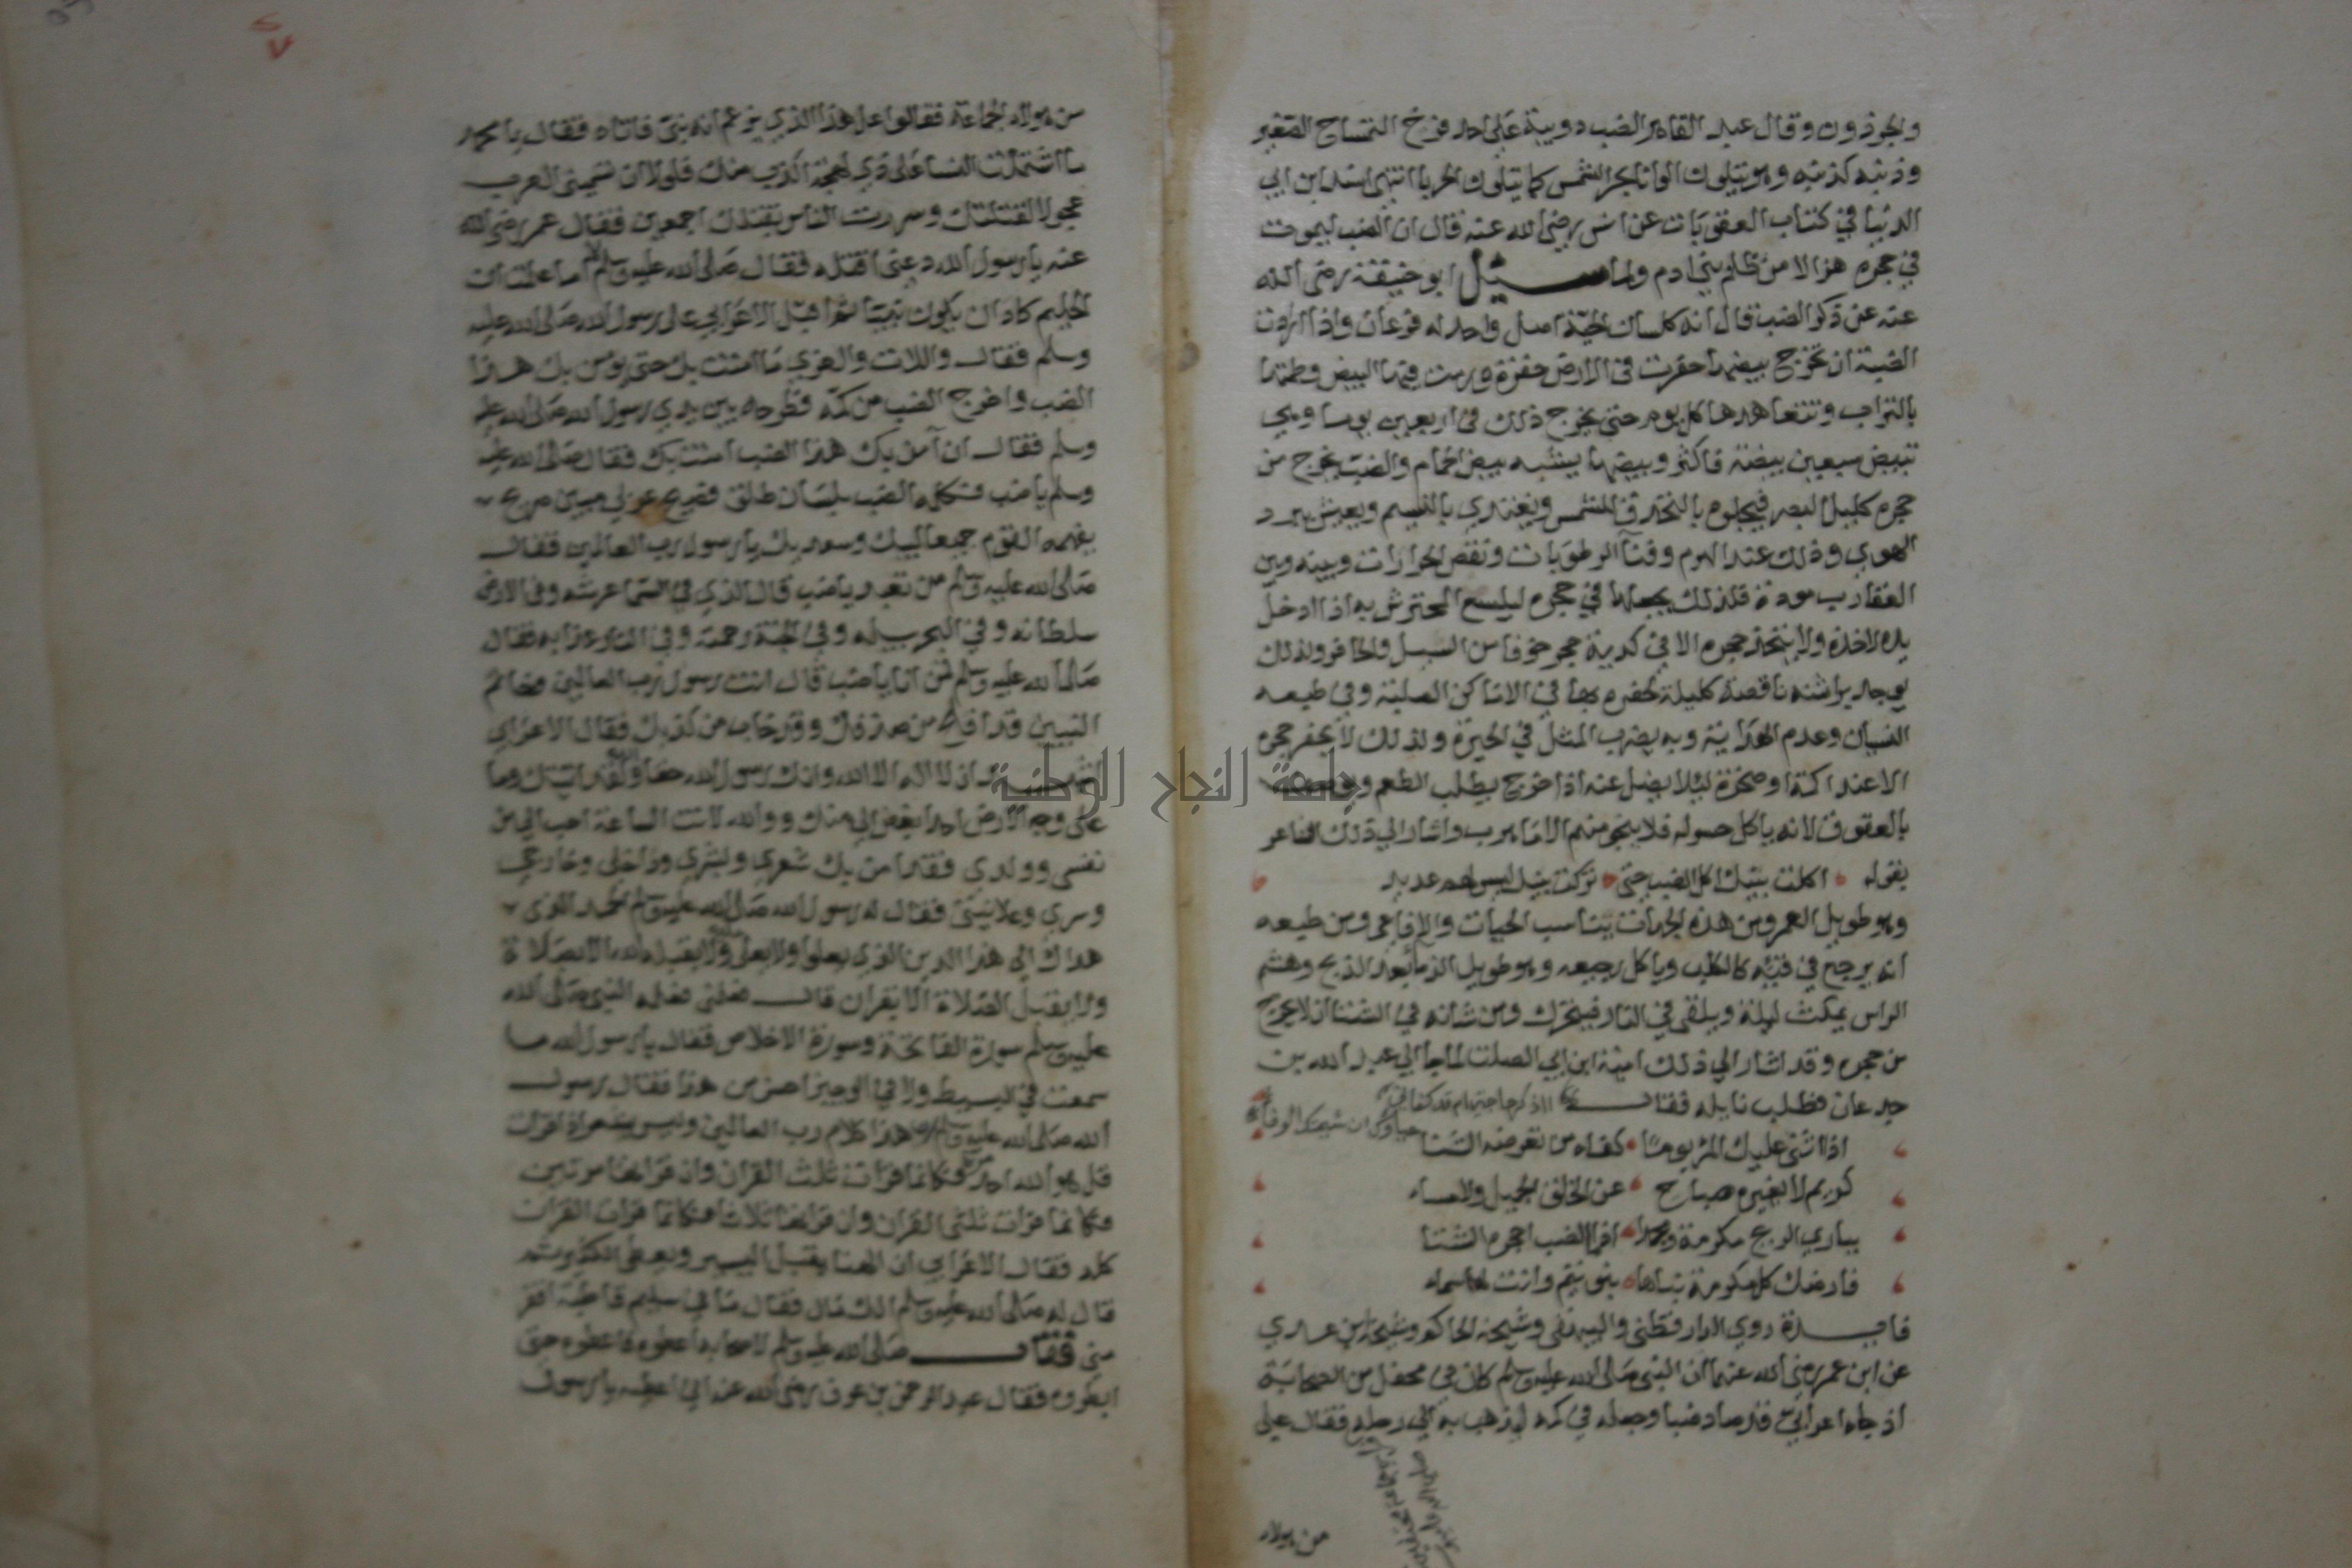 والجرذون وقال عبد القاهر الضب دويبة على حد فرخ التمساح الصغير
وذنبه كذنبه وهو يتلون الوانا بحر الشمس كما يتلون الحربا انتهى اسند ابن ابي
الدنيا في كتاب العقوبات عن انس رضى الله عنه قال ان الضب ليموت
في حجره هزالا من ظلم بني ادم ولما سئل ابو حنيفة رضى الله
عنه عن ذكر الضب قال انه كلسان الحية اصل واحد له فرعان واذا ارادت
الضبة ان تخرج بيضها حفرت في الارض حفرة ورمت فيها البيض وطمتها
بالتراب وتتعاهدها كل يوم حتى يخرج ذلك في اربعين يوما وهي
تبيض سبعين بيضة فاكثر وبيضها يشبه بيض الحمام والضب يخرج من
حجره كليل البصر فيجلوه بالتحدق للشمس ويغتدي بالنسيم ويعيش ببرد
الهوي وذلك عند الهرم وفنآ الرطوبات ونقص الحرارات وبينه وبين
العقارب مودة فلذلك يجعلها في حجره ليلسع المحترش به اذا ادخل
يده لاخذه ولا يتخذ حجره الا في كدية حجر خوفا من السيل والحافر ولذلك
يوجد براثنه ناقصة كليلة لحفره بها في الاماكن الصلبة وفي طبعه
النسيان وعدم الهداية وبه يضرب المثل في الحيرة ولذلك لا يحفر حجره
الا عند اكمة او صخرة ليلا يضل عنه اذا خرج يطلب الطعم ويوصف
بالعقوق لانه ياكل حسوله فلا ينجو منهم الا ما هرب واشار الي ذلك الشاعر
بقوله اكلت بنيك اكل الضب حتى تركت بنيك ليس لهم عديد
وهو طويل العمر ومن هذه الجهات يناسب الحيات والافاعى ومن طبعه
انه يرجع في قيئه كالكلب وياكل رجيعه وهو طويل الذما بعد الذبح وهشم
الراس يمكث ليلة ويلقى في النار فيتحرك ومن شانه في الشتا ان لا يخرج
من حجره وقد اشار الي ذلك امية ابن ابي الصلت لما جا الي عبد الله بن
جدعان فطلب نايله فقال أاذكر حاجتي ام قد كفاني
حياوك ان شيمتك الوفا
اذا اثنى عليك المرء يوما كفاه من تعرضه الثنا
كريم لا يغيره صباح عن الخلق الجميل ولا مساء
يباري الريح مكرمة ومجدا اذا ما الضب احجره الشتا
فارضك كل مكرمة بناها بنو تيم وانت لها سماء
فايدة روي الدارقطنى والبيهقى وشيخه الحاكم وشيخه ابن عدي
عن ابن عمر رضى الله عنهما ان النبى صلى الله عليه وسلم كان في محفل من الصحابة
اذ جاه اعرابي قد صاد ضبا وجعله في كمه ليذهب به الي رحله فقال على
من هولاء
من هولاء الجماعة فقالوا على هذا الذي يزعم انه نبى فاتاه فقال يا محمد
ما اشتملت النسا على ذي لهجة اكذب منك فلولا ان تسمينى العرب
عجولا لقتلتك وسررت الناس بقتلك اجمعين فقال عمر رضى الله
عنه يا رسول الله دعني اقتله فقال صلى الله عليه وسلم اما علمت ان
الحليم كاد ان يكون نبيا ثم اقبل الاعرابي على رسول الله صلى الله عليه
وسلم فقال واللات والعزي ما امنت بك حتى يومن بك هذا
الضب واخرج الضب من كمه فطرحه بين يدي رسول الله صلى الله عليه
وسلم فقال ان آمن بك هذا الضب امنت بك فقال صلى الله عليه
وسلم يا ضب فكلمه الضب بلسان طلق فصيح عربي مبين صريح
يفهمه القوم جميعا لبيك وسعديك يا رسول رب العالمين فقال
صلى الله عليه وسلم من تعبد يا ضب قال الذي في السما عرشه وفى الارض
سلطانه وفي البحر سبيله وفي الجنة رحمته وفي النار عذابه فقال
صلى الله عليه وسلم فمن انا يا ضب قال انت رسول رب العالمين وخاتم
النبيين قد افلح من صدقك وقد خاب من كذبك فقال الاعرابي
اشهد ان لا اله الا الله وانك رسول الله حقا ولقد اتيتك وما
على وجه الارض احد ابغض الي منك ووالله لانت الساعة احب الي من
نفسى وولدي فقد امن بك شعري وبشري وداخلي وخارجي
وسري وعلانيتى فقال له رسول الله صلى الله عليه وسلم الحمد لله الذي
هداك الي هذا الدين الذي يعلو ولا يعلى ولا يقبله الله الا بصلاة
ولا يقبل الصلاة الا بقران قال فعلمنى فعلمه النبي صلى الله
عليه وسلم سورة الفاتحة وسورة الاخلاص فقال يا رسول الله ما
سمعت في البسيط ولا في الوجيز احسن من هذا فقال رسول
الله صلى الله عليه وسلم هذا كلام رب العالمين وليس بشعر اذا قرات
قل هو الله احد مرة فكانما قرات ثلث القران وان قراتها مرتين
فكانما قرات ثلثى القران وان قراتها ثلاثا فكانما قرات القران
كله فقال الاعرابي ان الهنا يقبل اليسير ويعطى الكثير ثم
قال له صلى الله عليه وسلم الك مال فقال ما في سليم قاطبة افقر
منى فقال صلى الله عليه وسلم لاصحابه اعطوه فاعطوه حتى
ابطروه فقال عبد الرحمن بن عوف رضى الله عنه اني اعطيه يا رسول
جامعة النجاح الوطنية